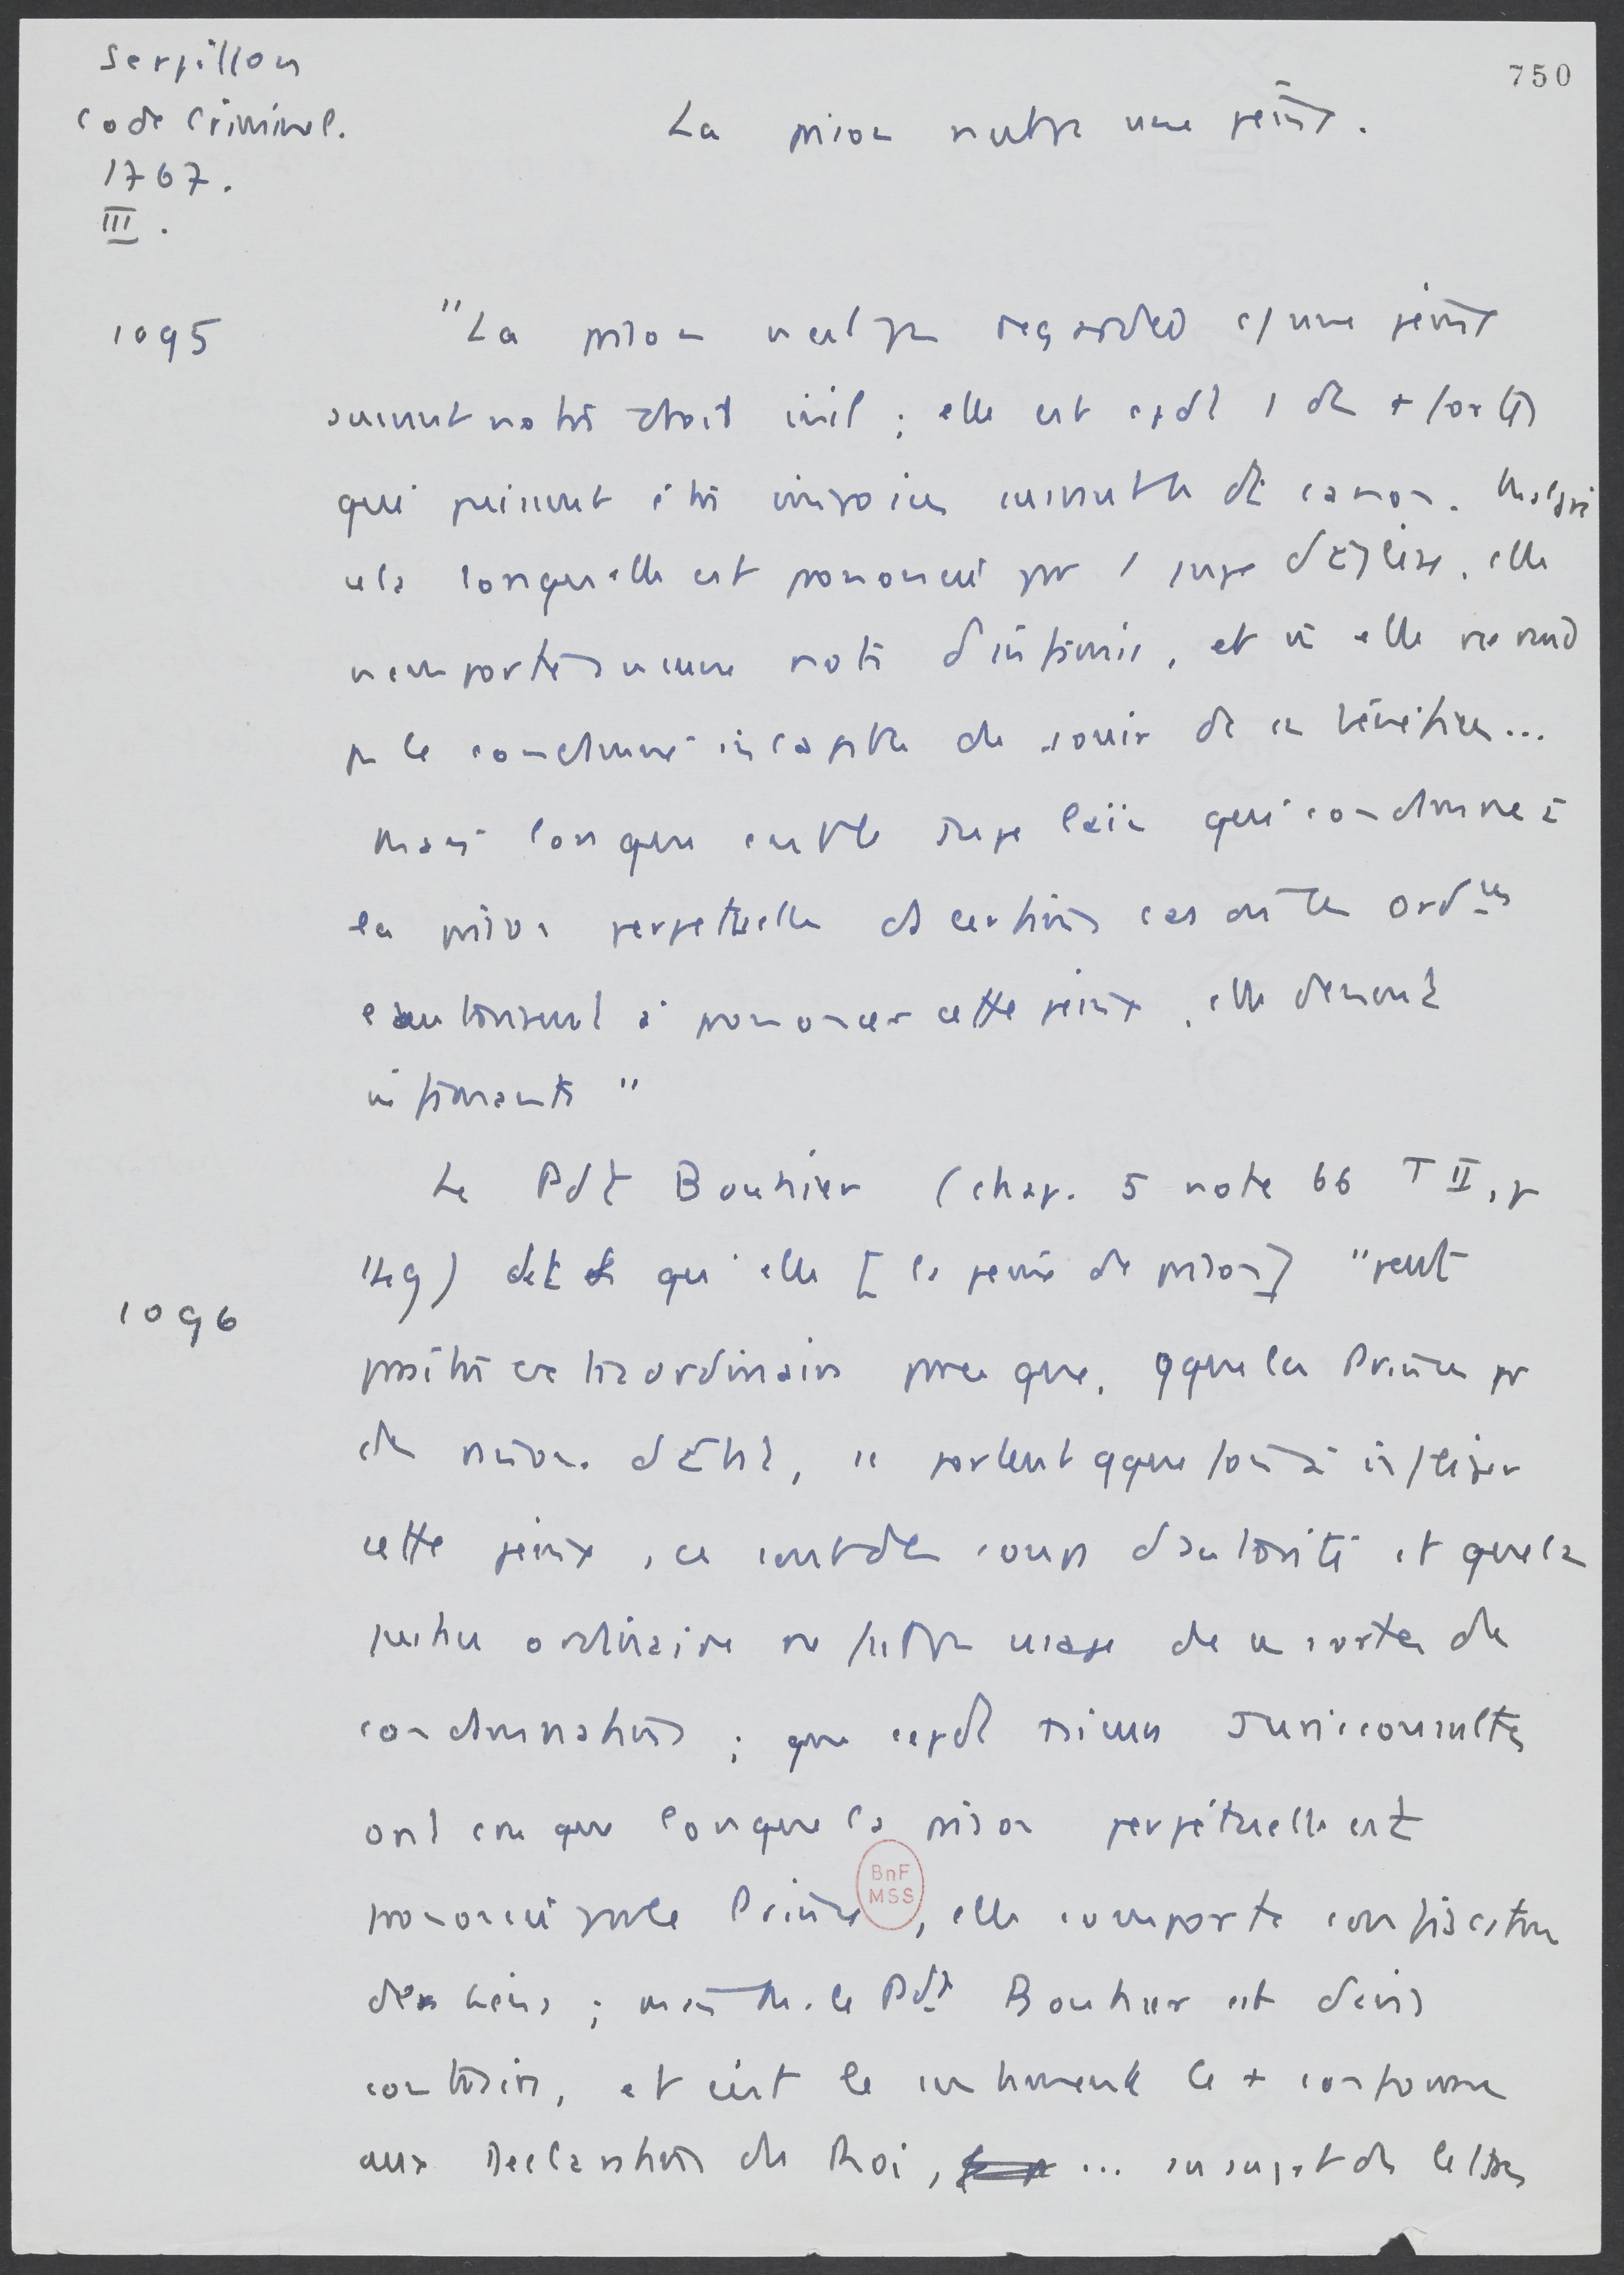 Serpillon
Code Criminel.
1767.
III.
750
La prison n'est pas une peine.
1095
"La prison n'est pas regardée c/ une peine
suivant notre droit civil ; elle est cpdt 1 des + fortes
qui puissent être imposées suivant le dt canon. Malgré
cela lorsqu'elle est prononcée par 1 juge d'Eglise, elle
n'emporte aucune note d'infamie, et si elle ne rend
pas le condamné incapable de jouir de ses bénéfices...
Mais lorsque c'est le Juge laïc qui condamne à
la prison perpétuelle ds certains cas où les Ord.ces
l'autorisent à prononcer cette peine, elle devient
infamante"
Le Pdt Bouhier (chap. 5 note 66 T II, p
149) dit qu'elle [la peine de prison] "peut
1096
paraître extraordinaire parce que, qque les Princes pr
des raisons d'Etat, se portent qque fois à infliger
cette peine, ce sont des coups d'autorité et que la
justice ordinaire ne fait pas usage de ces sortes de
condamnations ; que cepdt plusieurs Jurisconsultes
ont cru que lorsque la prison perpétuelle est
prononcée par le Prince, elle emporte confiscation
BnF
MSS
des biens ; mais M. le Pdt Bouhier est d'avis
contraire, et c'est le sentiment le + conforme
aux Déclarations du Roi, ... au sujet des lettres